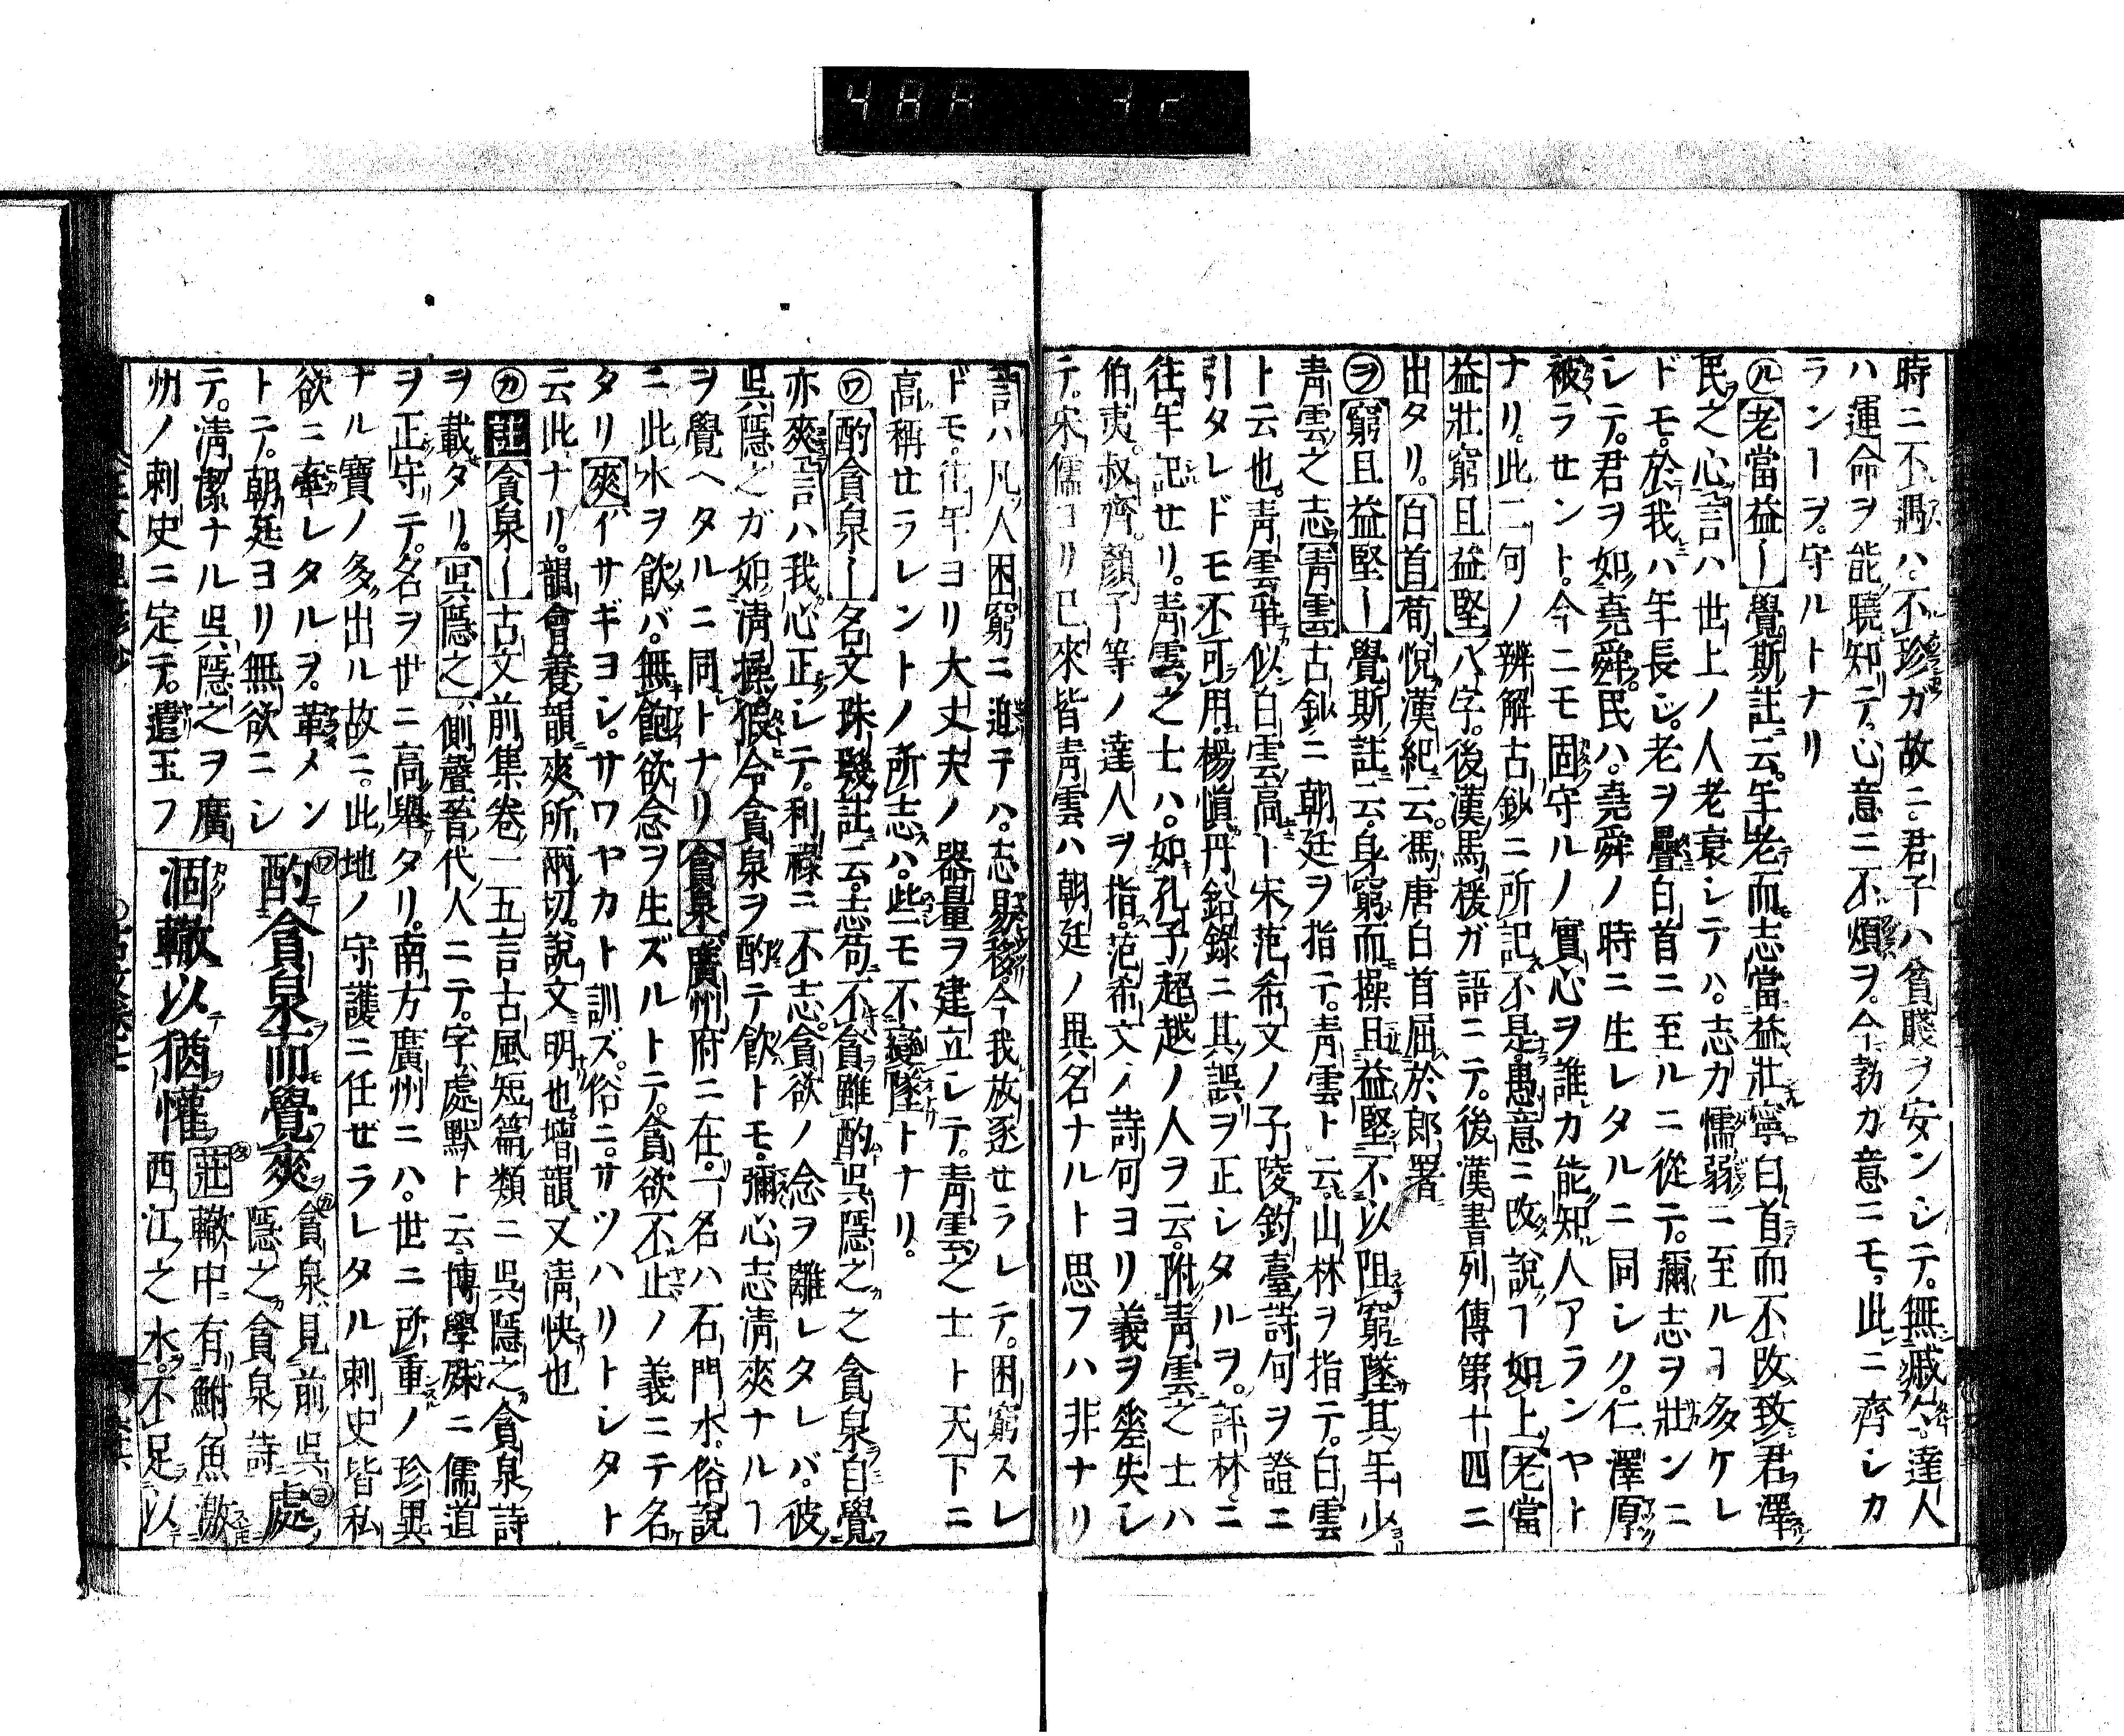 時ニ不遇ハ。不珍ガ故ニ。君子ハ貧賤ヲ安ンシテ。無戚々。達人
ハ運命ヲ能曉知テ。心意ニ不煩ヲ。今勃カ意ニモ。此ニ齊シカ
ランーヲ。守ルトナリ
㋸老當益ー覺斯註云。年老而志當益壯寧白首而不改致君澤
民之心言ハ世上ノ人老衰シテハ。志カ懦弱ニ至ルヿ多ケレ
ドモ。於我ハ年長シ。老ヲ疊白首ニ至ルニ從テ。彌志ヲ壯ンニ
シテ。君ヲ如堯舜民ハ。堯舜ノ時ニ生レタルニ同シク。仁澤厚
被ラセント。今ニモ固守ルノ實心ヲ誰カ能知人アランヤト
ナリ。此二句ノ辨解古鈔ニ所記不是愚意ニ改說ヿ如上老當
益壯窮且益堅八字。後漢馬援ガ語ニテ。後漢書列傳第十四ニ
出タリ。白首荀悅漢紀云。馮唐白首屈於郎署
㋾窮且益堅ー覺斯註云。身窮而操且益堅不以阻窮墜其年少
青雲之志青雲古鈔ニ朝廷ヲ指テ。青雲ト云。山林ヲ指テ。白雲
ト云也。青雲難似白雲高ト宋范希文ノ子陵釣臺詩句ヲ證ニ
引タレドモ不可用。楊愼丹鉛錄ニ其誤ヲ正シタルヲ。評林ニ
往年記セリ。青雲之士ハ。如孔子超越ノ人ヲ云。附青雲之士ハ
伯夷叔齊顏子等ノ達人ヲ指。范希文ノ詩句ヨリ義ヲ差失シ
テ。宋儒ヨリ已來皆青雲ハ朝廷ノ異名ナルト思フハ非ナリ
言ハ凡人困窮ニ迫テハ。志易移今我放逐セラレテ。困窮スレ
ドモ。往年ヨリ大丈夫ノ器量ヲ建立シテ。青雲之士ト天下ニ
高稱セラレントノ所志ハ。些ニモ不變墜トナリ。
㋻酌貪泉ー名文珠璣註云。志苟不貪雖酌呉隱之之貪泉自覺
亦爽言ハ我心正シテ。利祿ニ不志。貪欲ノ念ヲ離レタレバ。彼
呉隱之ガ如淸操假令貪泉ヲ酌テ飮トモ。彌心志淸爽ナルヿ
ヲ覺ヘタルニ同トナリ貪泉廣州府ニ在。一名ハ石門水。俗說
ニ此水ヲ飮バ。無飽欲念ヲ生ズルトテ。貪欲不止ノ義ニテ名
タリ爽イサギヨシ。サワヤカト訓ズ。俗ニ。サツハリトシタト
云此ナリ。韻會養韻爽所兩切。說文明也。增韻又淸快也
㋕註貪泉ー古文前集卷一五言古風短篇類ニ呉隱之貪泉詩
ヲ載タリ。呉隱之側聲晉代人ニテ。字處默ト云。博學殊ニ儒道
ヲ正守テ。名ヲ世ニ高擧タリ。南方廣州ニハ。世ニ所重ノ珍異
ナル寶ノ多出ル故ニ。此地ノ守護ニ任ゼラレタル刺史皆私
欲ニ牽レタルヲ。革メン
トニテ。朝廷ヨリ無欲ニシ
テ。淸潔ナル呉隱之ヲ廣
州ノ刺史ニ定テ。遣玉フ
㋻酌貪泉而覺爽㋕貪泉見前呉隱之貪泉詩㋵處
涸轍以猶懽㋟莊轍中有鮒魚激西江之水。不足以